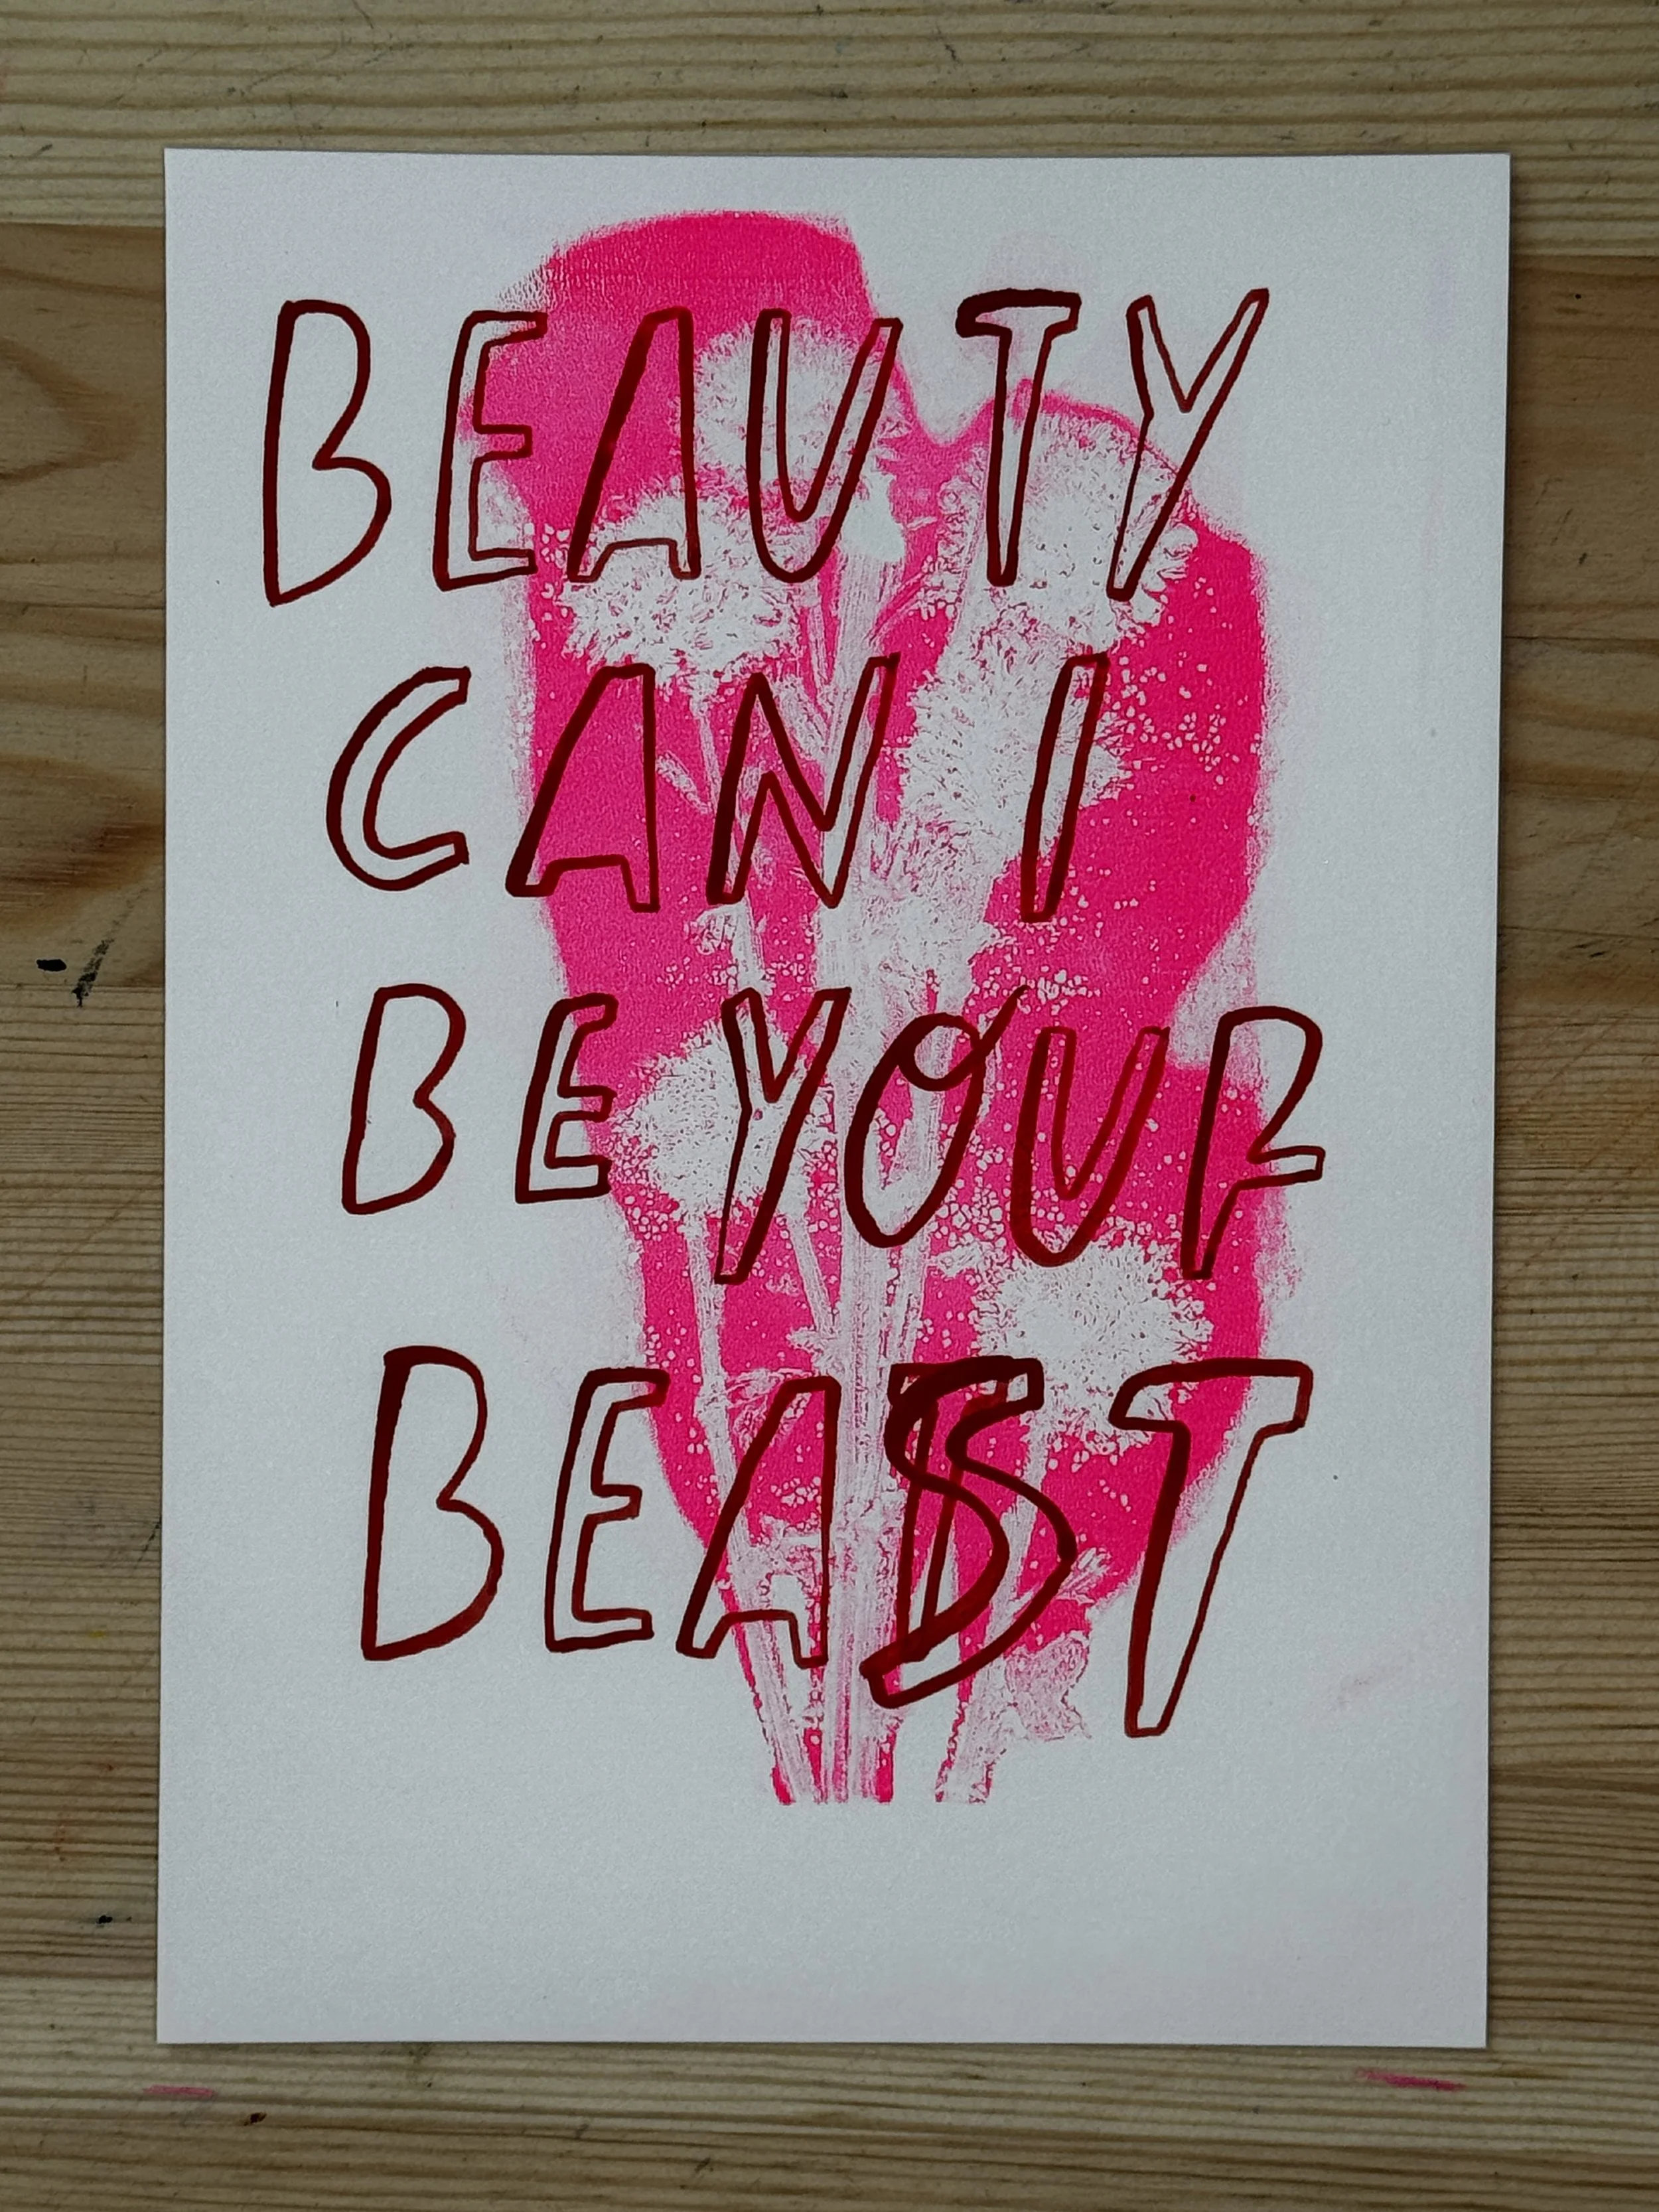 BEAUTY
CAN I
BE YOUR
BEAST